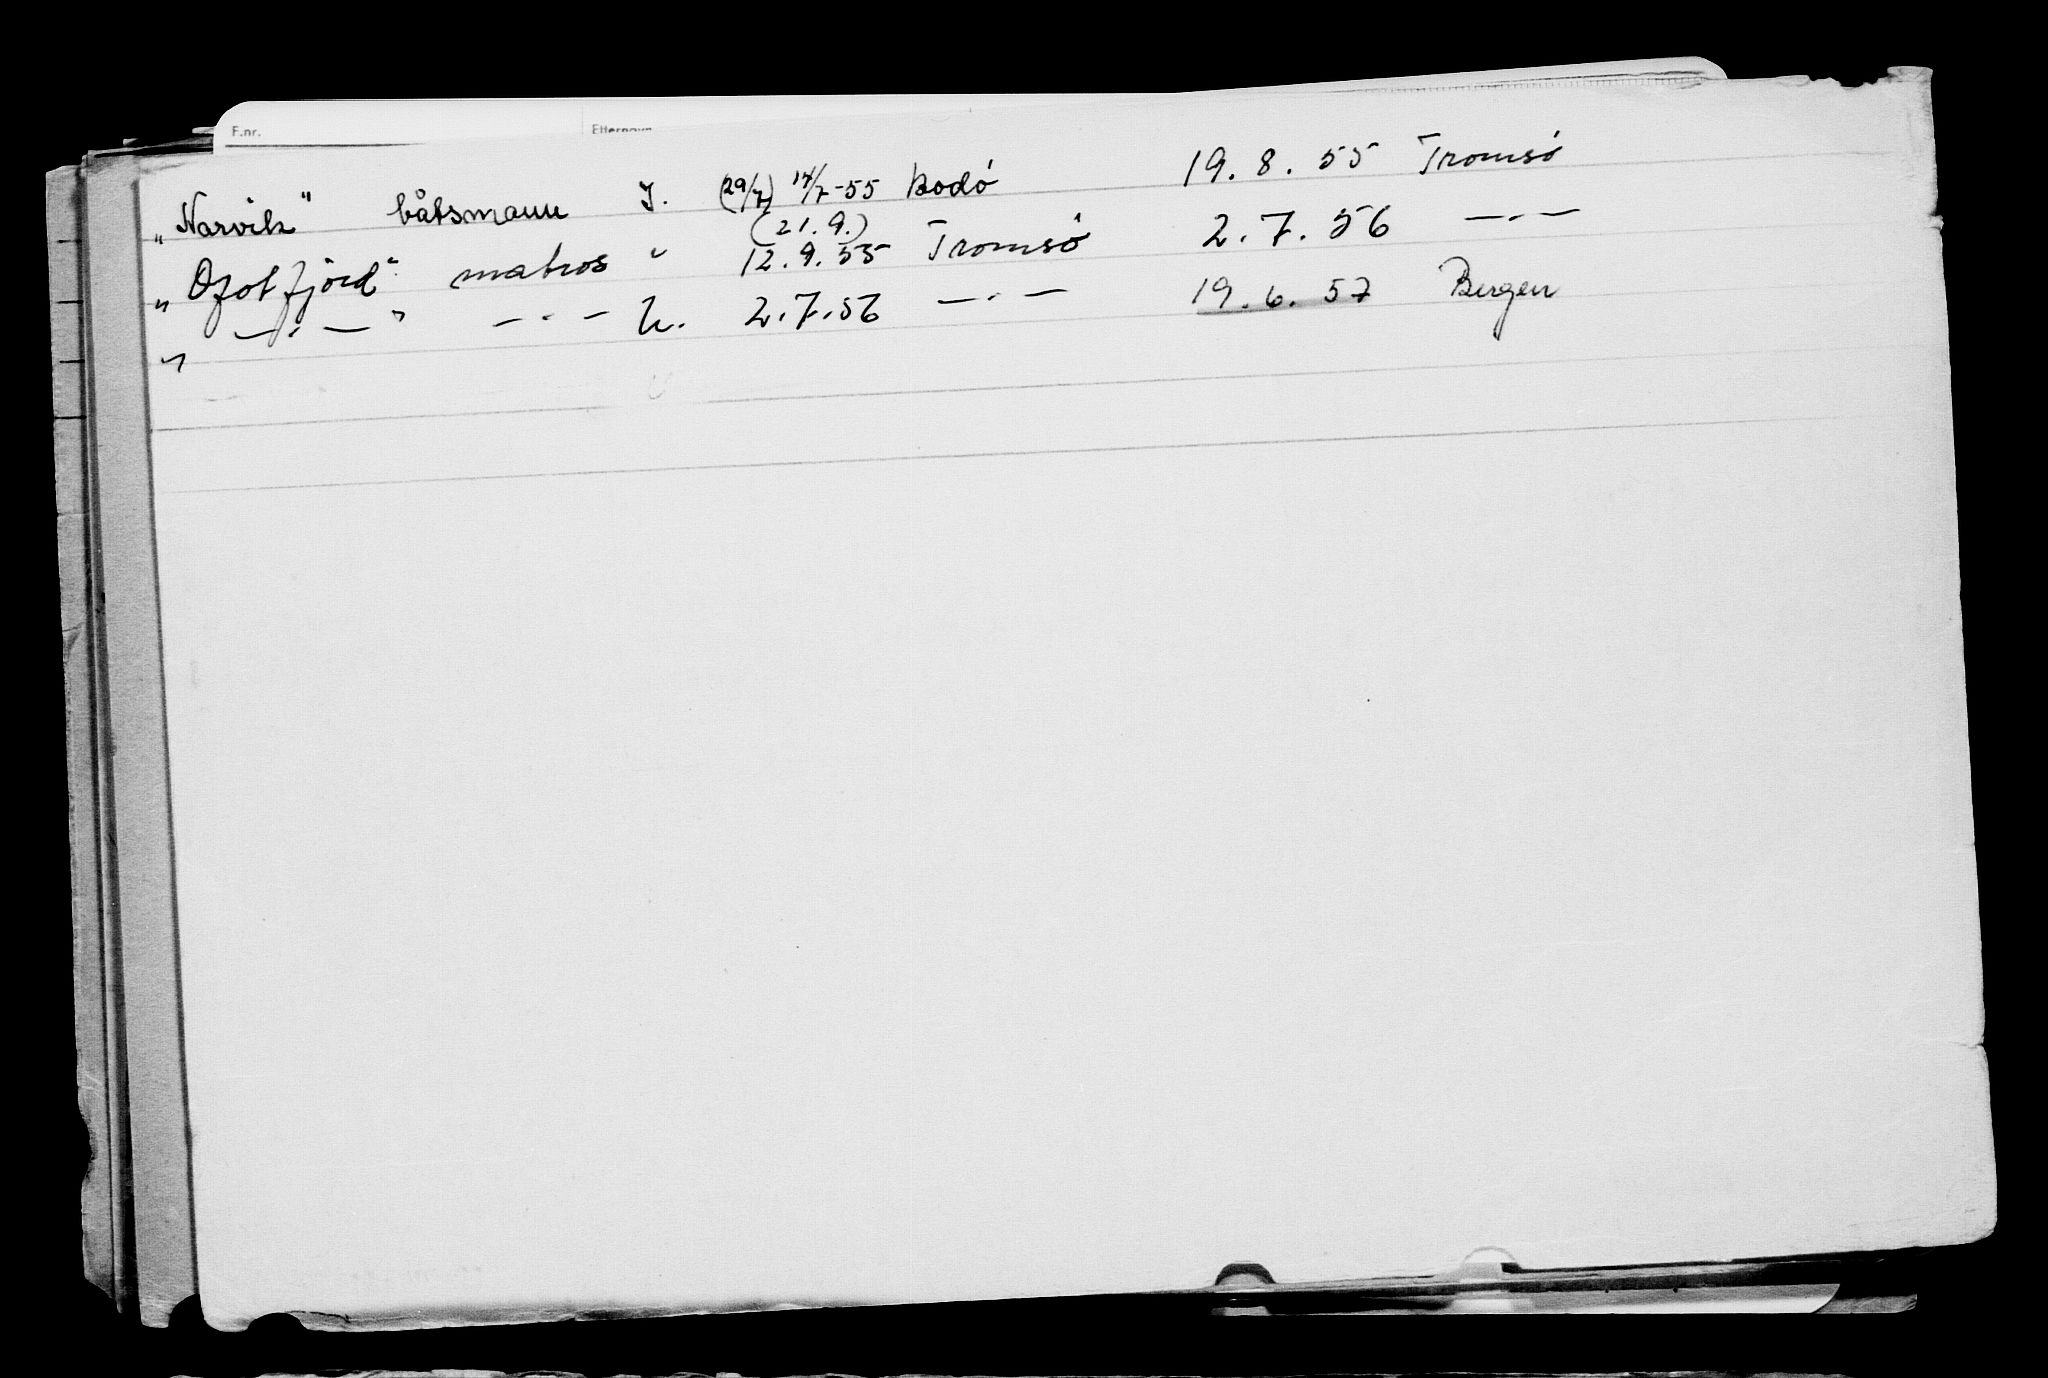 F.nr. Etternavn
„Narvik" båtsmann I. (29/7) 14/7-55 Bodó 19.8.55 Tromsó
(21.9.)
„Ofotfjord" matros " 12.9.55 Tromsó 2.7.56 —·—
„ —·— " —·— U. 2.7.56 —·— 19.6.57 Bergen